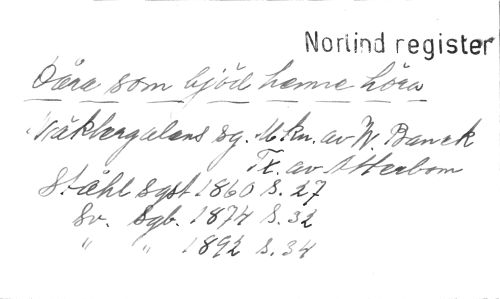 Norlind register
Dåra som bjöd henne höra
Näktergalens sg. Mkn. av W. Bauck
Tx. av Atterbom
Ståhl sgst 1860 s. 27
Sv. sgb. 1874 s. 32
" " 1892 s. 34